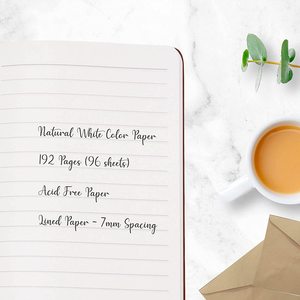 Natural White Color Paper
192 Pages (96 sheets)
Acid Free Paper
Lined Paper - 7mm Spacing